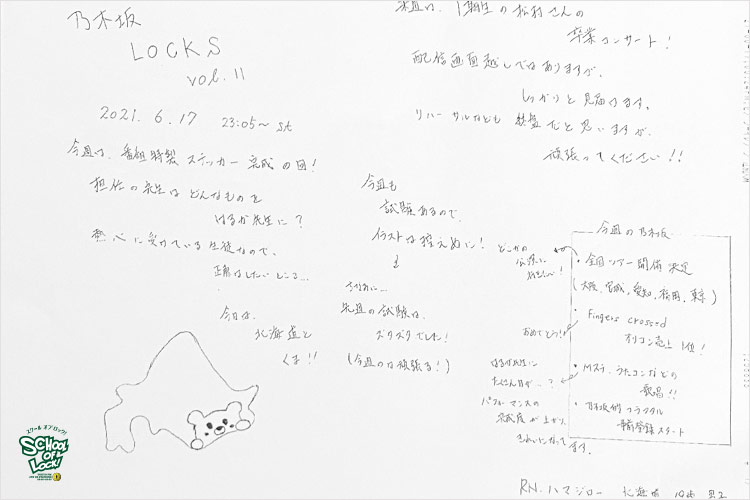 乃木坂
LOCKS
vol.11
2021. 6.17 23:05〜 st
今週は、番組特製ステッカー完成の回!
担任の先生はどんなものを
はるか先生に?
熱心に受けている生徒なので、
正解はしたいところ...
今日は、
北海道と
くま!!
来週は、1期生の松村さんの
卒業コンサート!
配信画面越しではありますが、
しっかりと見届けます。
リハーサルなども だと思いますが、
頑張ってください!!
今週も
試験あるので、
イラストは控えめに!
先週の試験は、
ズタズタでした!
(今週のは頑張る!)
どこかの
会場に
行きたい!
おめでとう!!
はるか先生に
たくさん目が...?
パフォーマンスの
完成度が上がり、
きれいになってます。
今週の乃木坂
・全国ツアー開催決定
(大阪、宮城、愛知、福岡、東京)
・Fingers crossed
オリコン売上1位!
・Mステ、うたコンなどの
歌唱!!
・乃木坂的フラクタル
事前登録スタート
RN.ハマジロー 北海道
スクールオブロック!
SCHOOL
OF
LOCK!